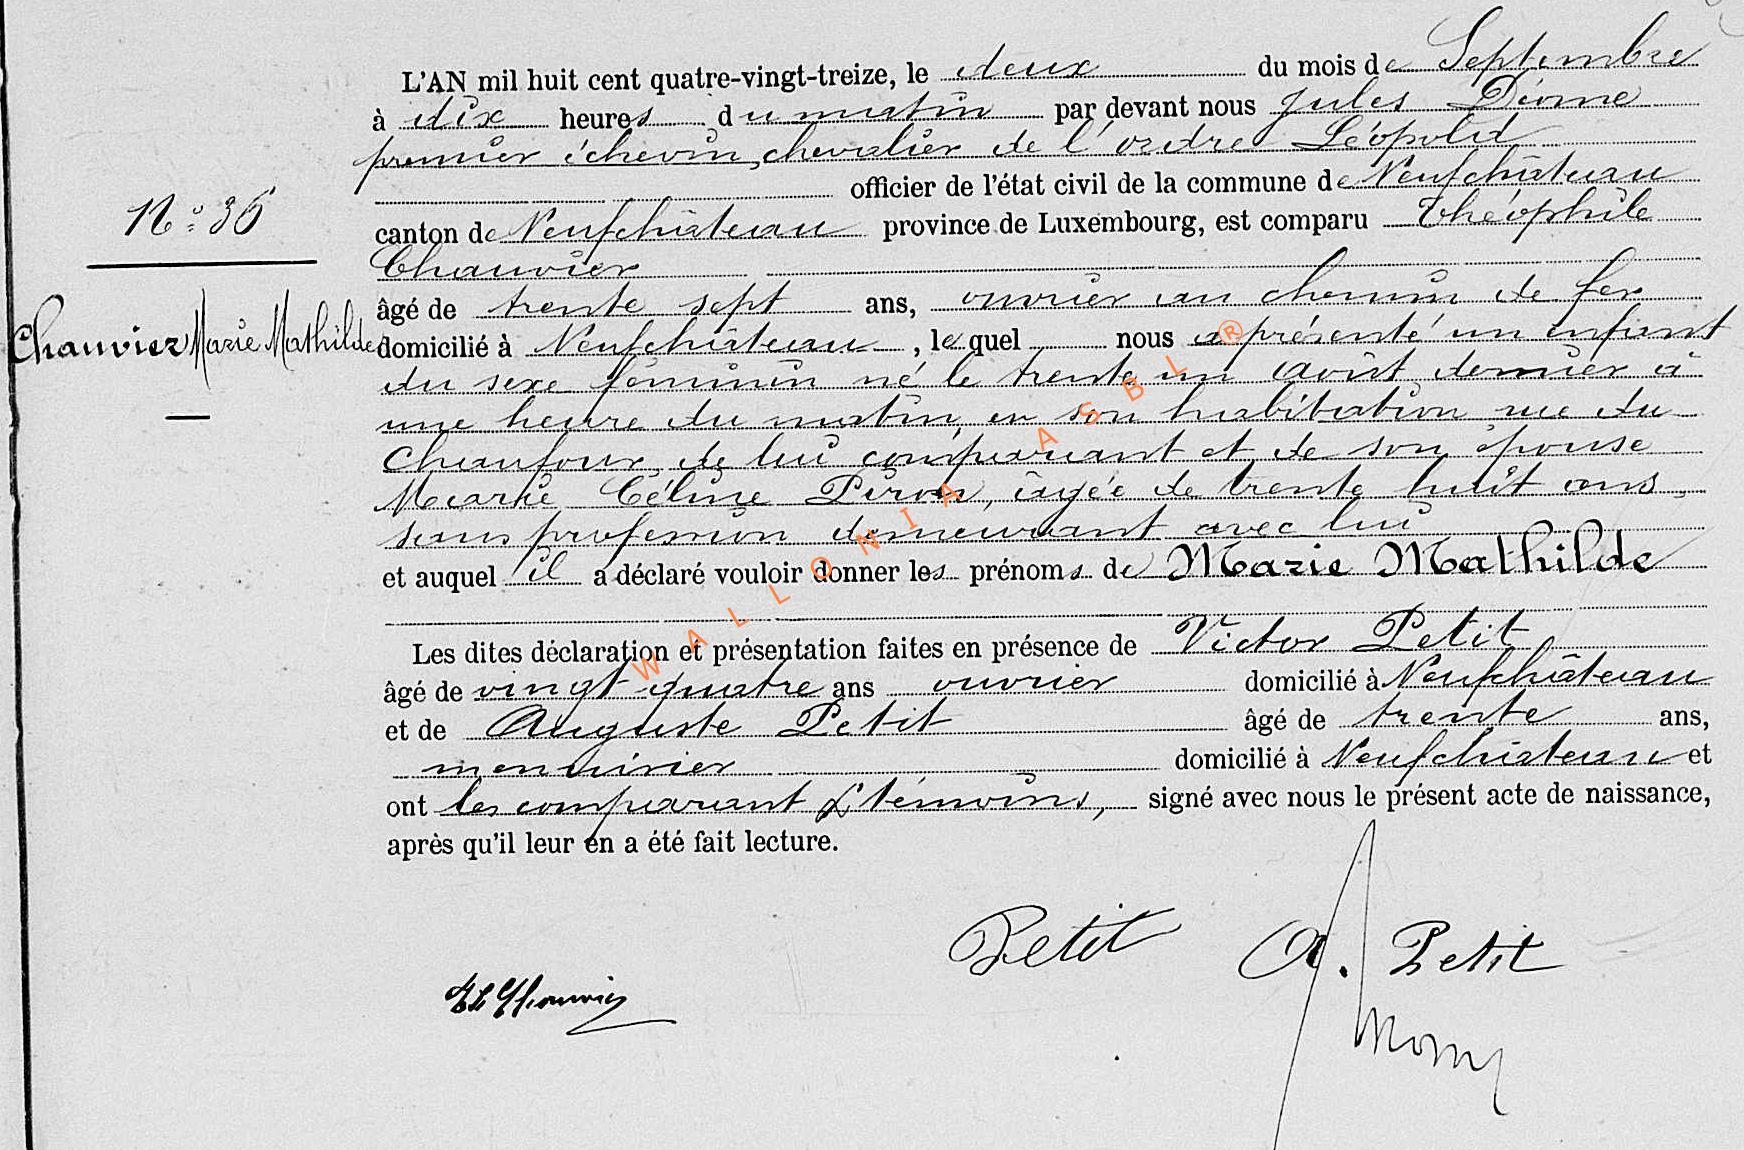 L'AN mil huit cent quatre-vingt-treize, le deux du mois de Septembre
à dix heures du matin par devant nous Jules Diome
premier échevin, chevalier de l'ordre Léopold
officier de l'état civil de la commune de Neufchâteau
N° 36
canton de Neufchâteau province de Luxembourg, est comparu Théophile
Chauvier
âgé de trente sept ans, ouvrier au chemin de fer
Chauvier Marie Mathilde
domicilié à Neufchâteau, lequel nous a présenté un enfant
du sexe féminin né le trente un août dernier à
une heure du matin, en son habitation rue du
Chaufour, de lui comparant et de son épouse
Marie Céline Piron, âgée de trente huit ans,
sans profession demeurant avec lui
et auquel il a déclaré vouloir donner les prénoms de Marie Mathilde
Les dites déclaration et présentation faites en présence de Victor Petit
âgé de vingt-quatre ans ouvrier domicilié à Neufchâteau
et de Auguste Petit âgé de trente ans,
menuisier domicilié à Neufchâteau et
ont les comparant & témoins, signé avec nous le présent acte de naissance,
après qu'il leur en a été fait lecture.
Petit A. Petit
Th Chauvier
WALLONIA ASBL ®